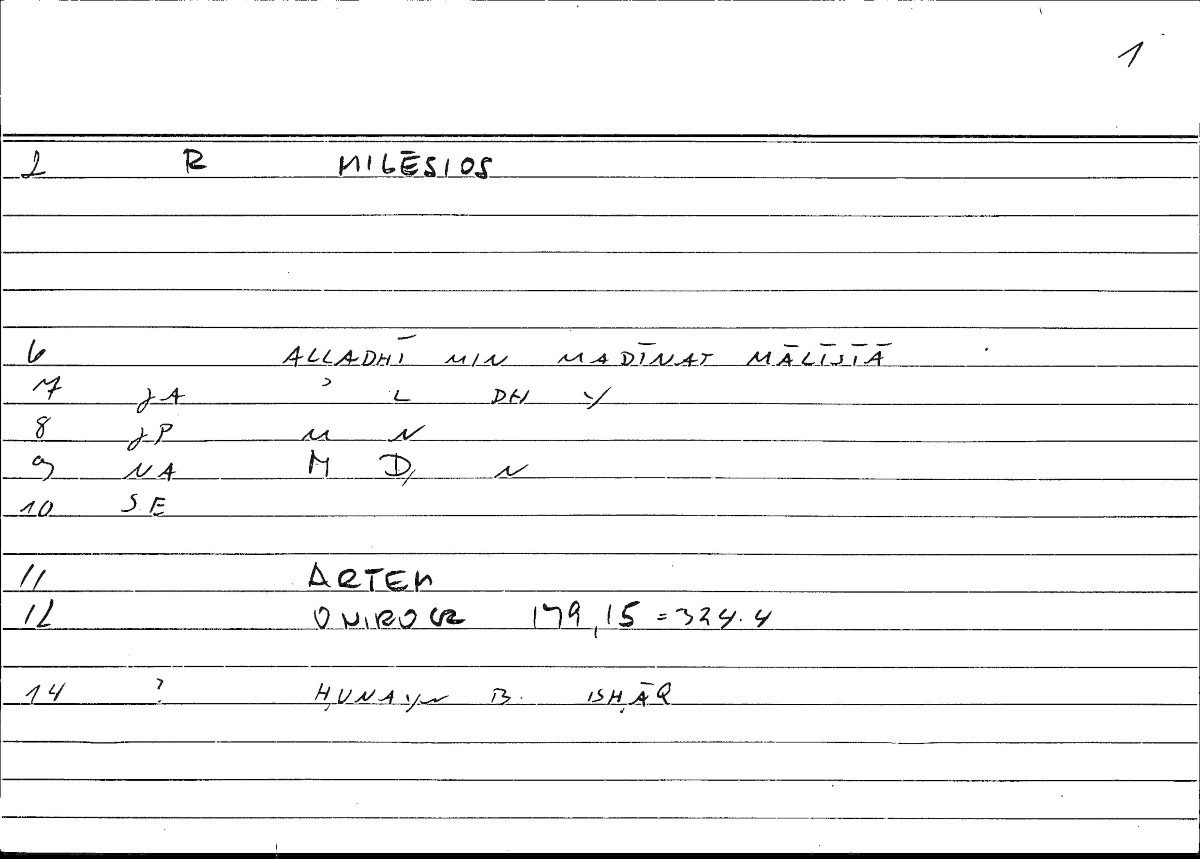 1
2 R MILĒSIOS
6 ALLADHĪ MIN MADĪNAT MĀLĪSĪĀ
7 JA ʾ L DH Y
8 JP M N
9 NA M D, N
10 SE
11 ARTEM
12 ONIROCR 179,15 = 324.4
14 ? ḤUNAYN B. ISḤĀQ